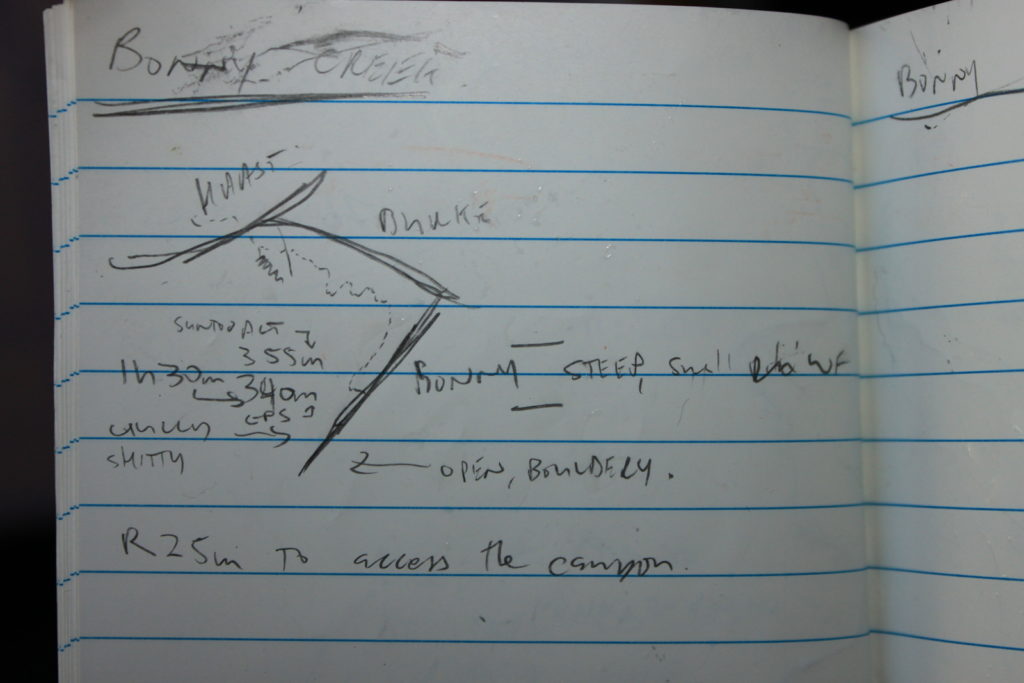 BONNY CREEK
BONNY
HAAST
BURKE
SUUNTO ALT
355m
1h30m 340m
GPS
BONNY STEEP, small
SHITTY
OPEN, BOULDERY.
R25m To access the canyon.